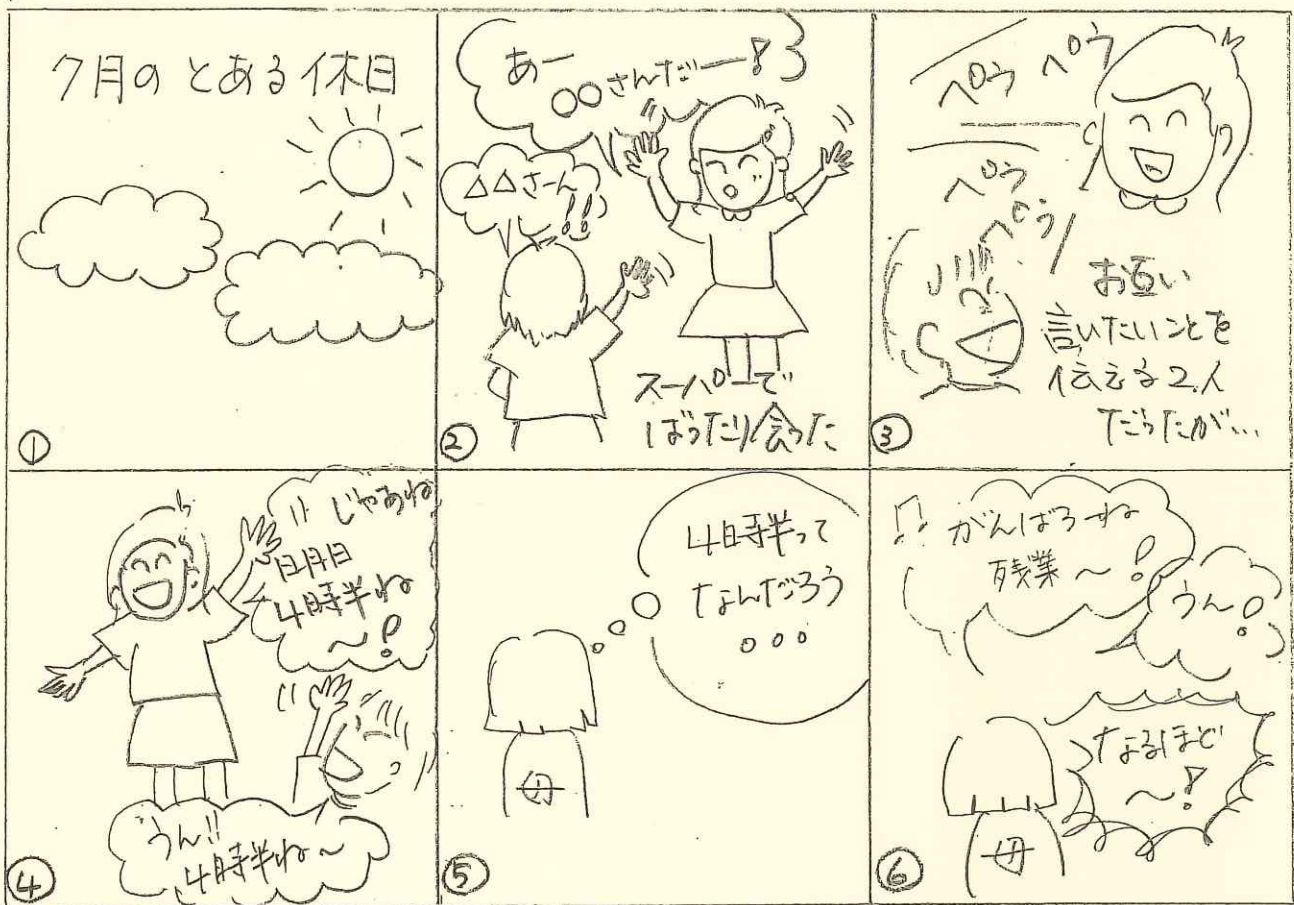 7月の とある休日
①
あー
○○さんだー!
△△さーん
!!
スーパーで
ばったり会った
②
ペラ ペラ
ペラ
ペラ
お互い
言いたいことを
伝える2人
だったが…
③
じゃあね
明日
4時半ね
〜!
うん!!
4時半ね〜
④
4時半って
なんだろう
○○○
母
⑤
がんばろーね
残業〜!
うん!
なるほど
〜!
母
⑥